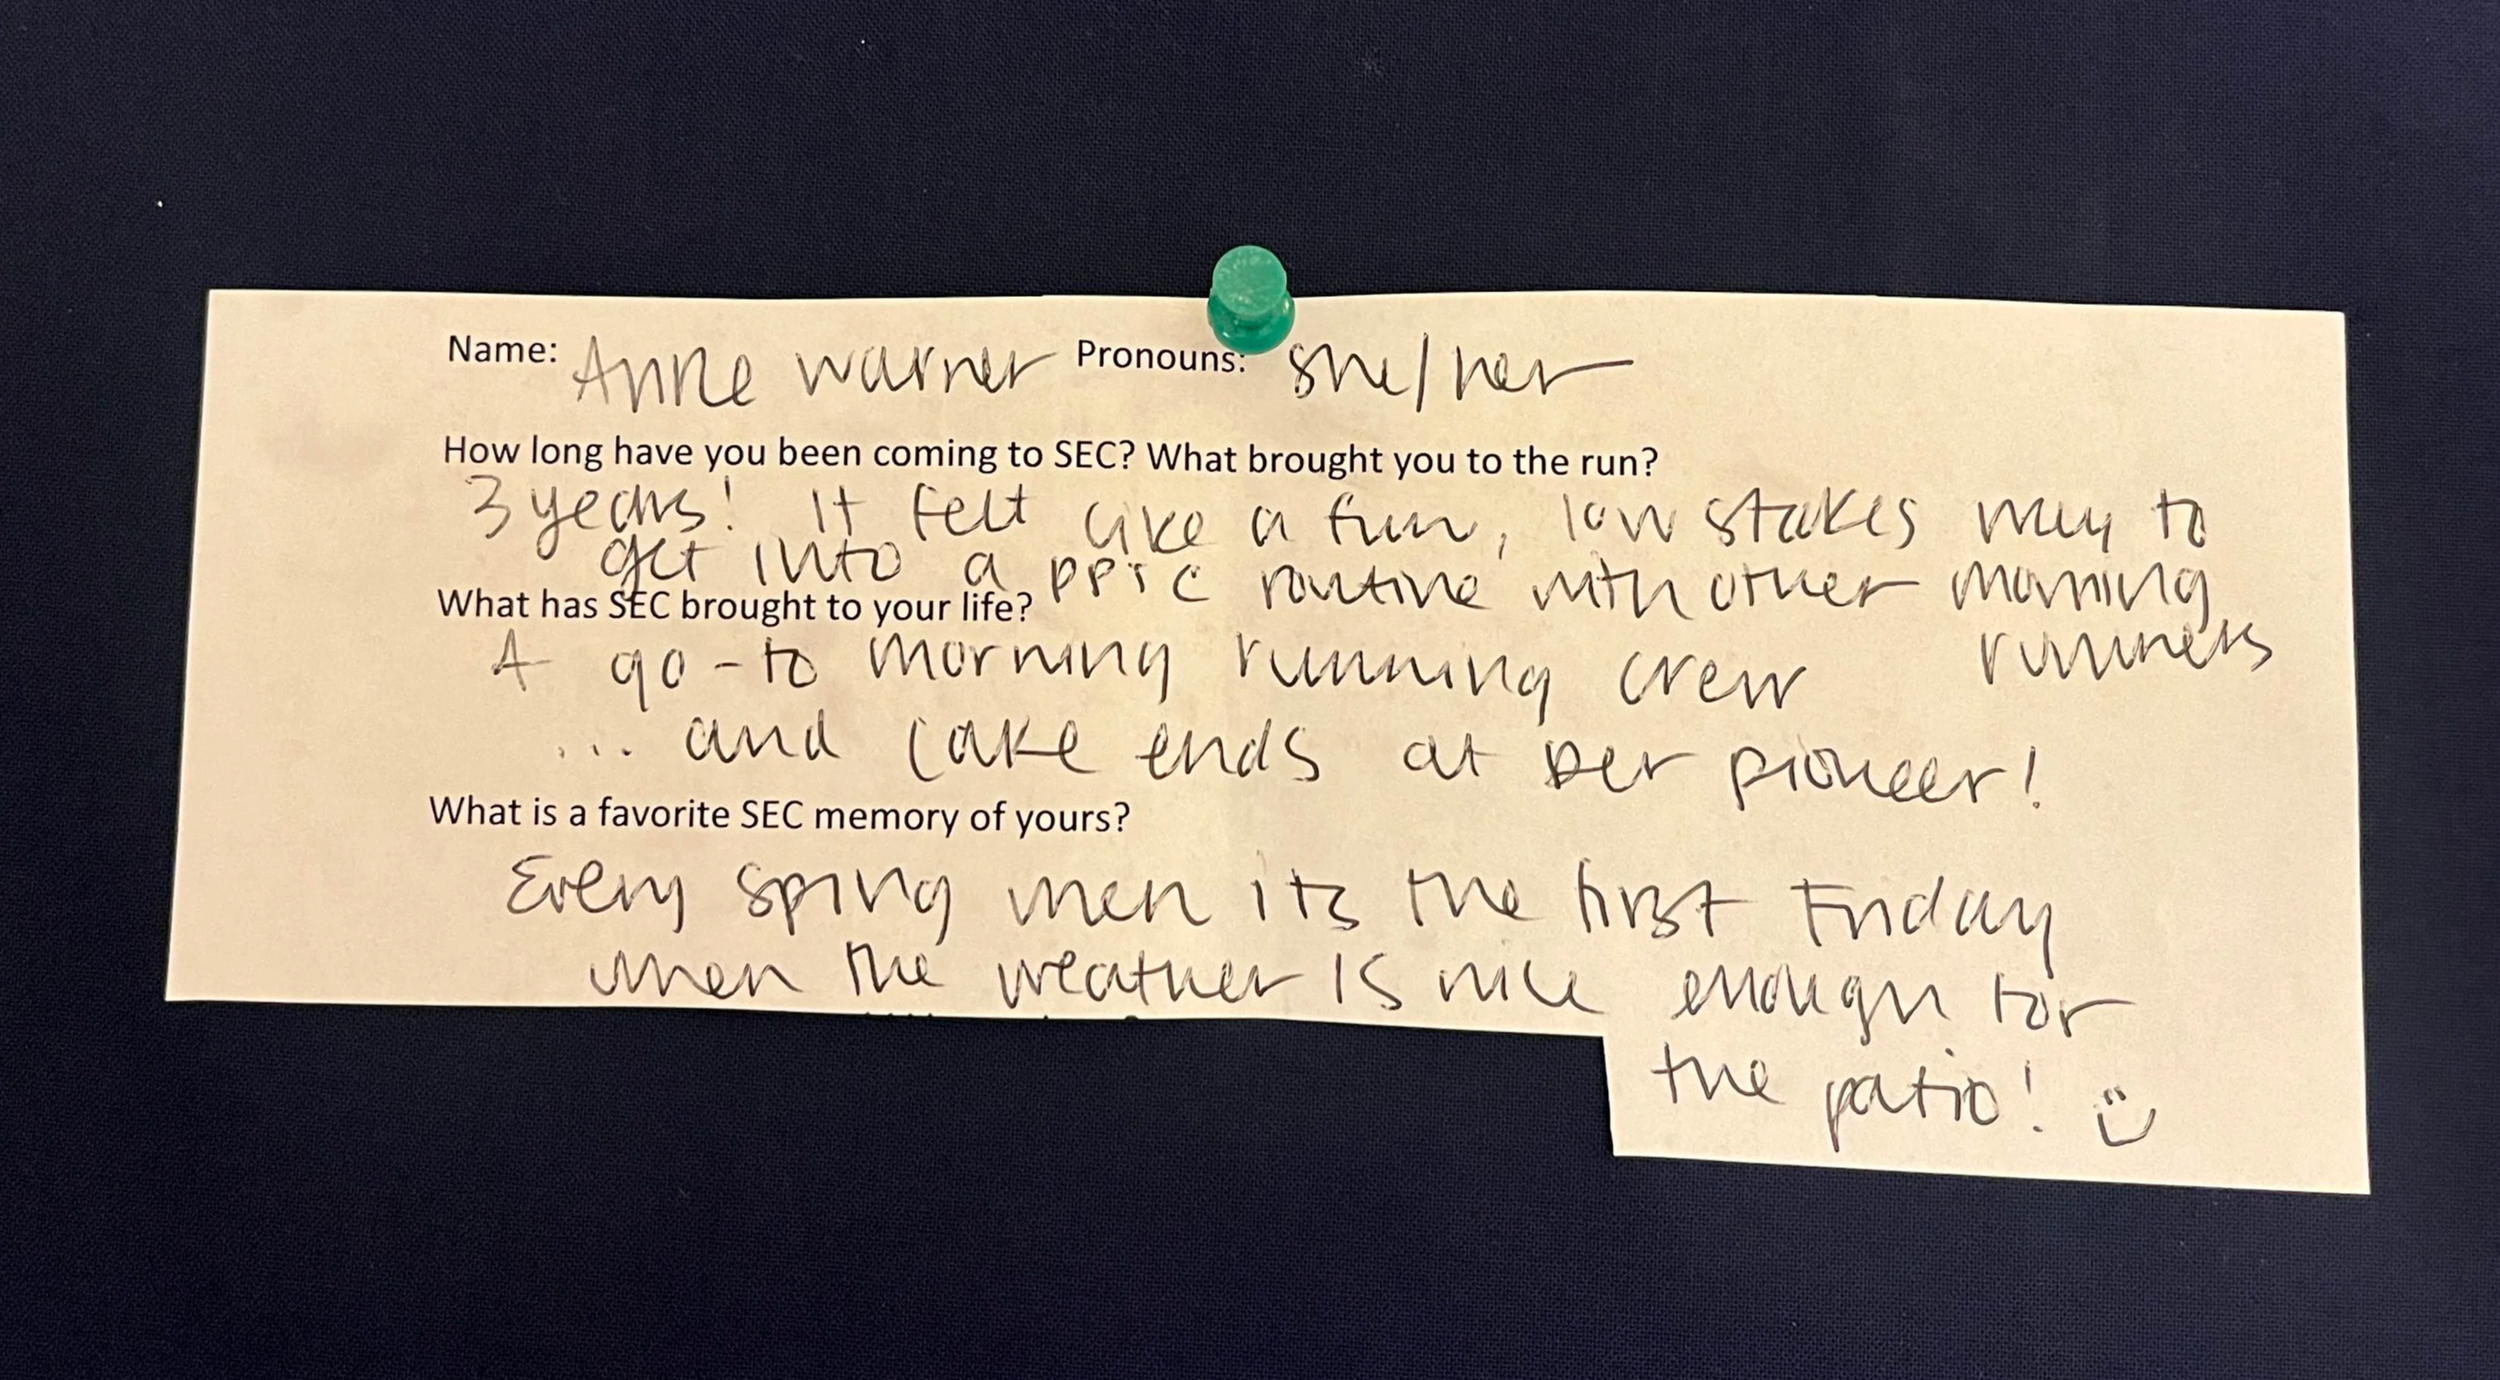 Name: Anne Warner Pronouns: she/her
How long have you been coming to SEC? What brought you to the run?
3 years! It felt like a fun, low stakes way to
get into a PPTC routine with other morning
runners
What has SEC brought to your life?
A go-to morning running crew
... and cake ends at Der Pioneer!
What is a favorite SEC memory of yours?
Every spring when its the first Friday
when the weather is nice enough for
the patio! :)